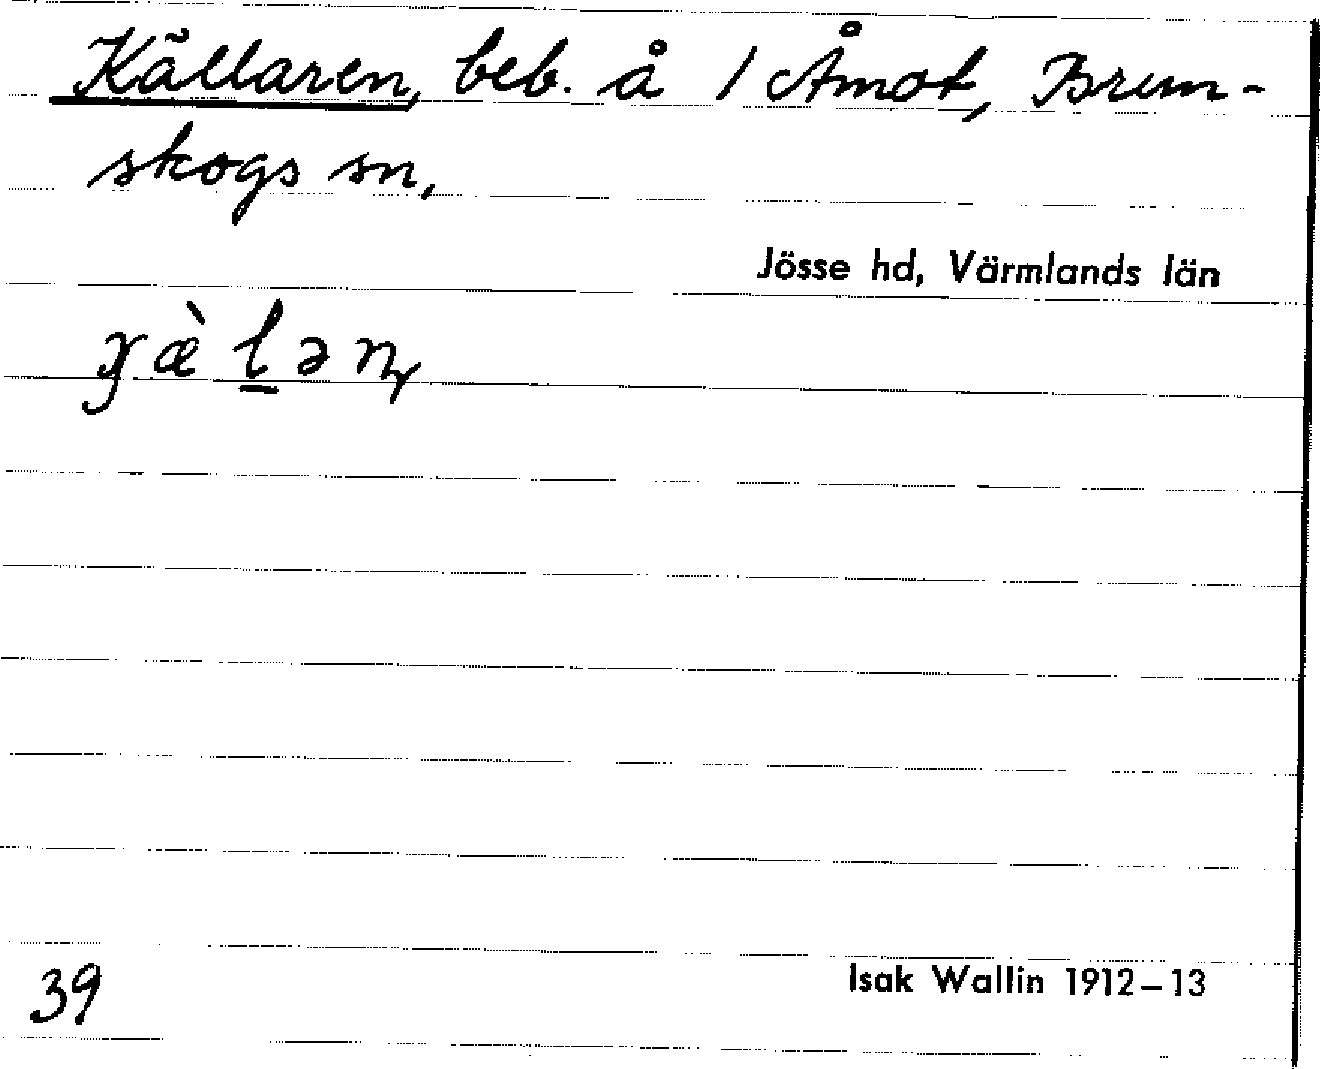 Källaren, beb. å 1 Åmot, Brun-
skogs sn,
Jösse hd, Värmlands län
39
Isak Wallin 1912–13